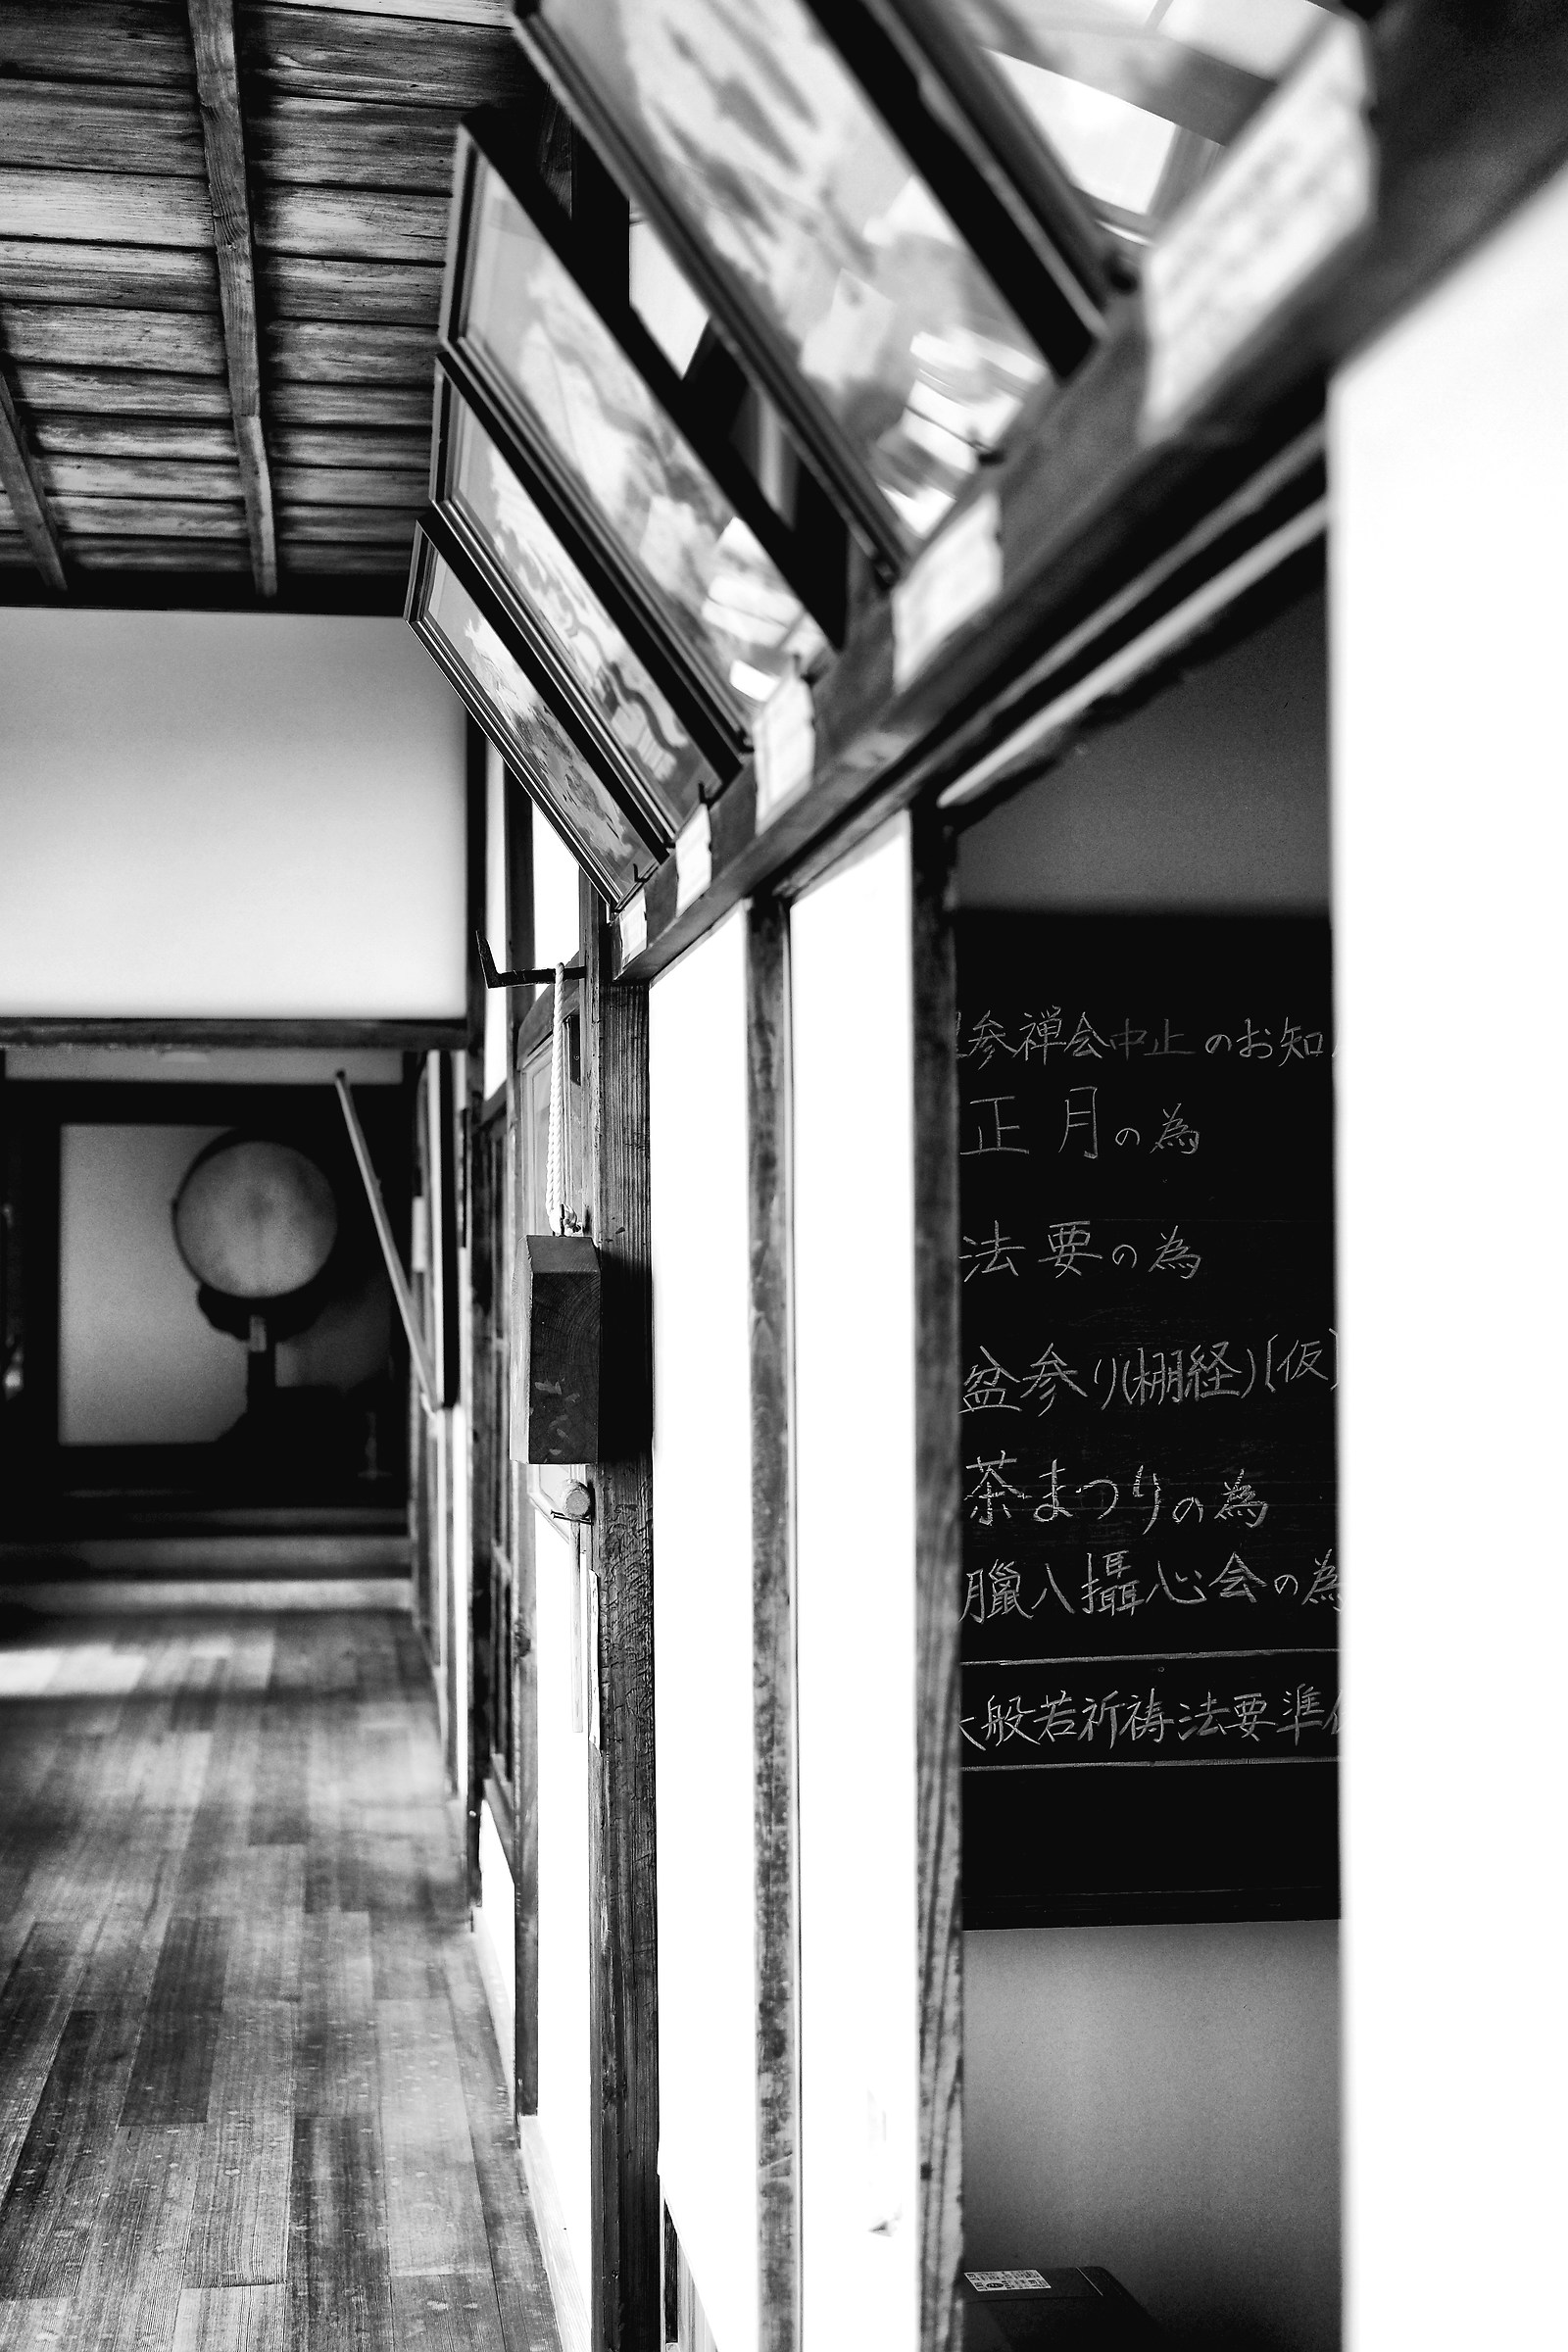 参禅会中止のお知
正月の為
法要の為
盆参り(棚経)[仮]
茶まつりの為
臘八攝心会の為
般若祈祷法要準